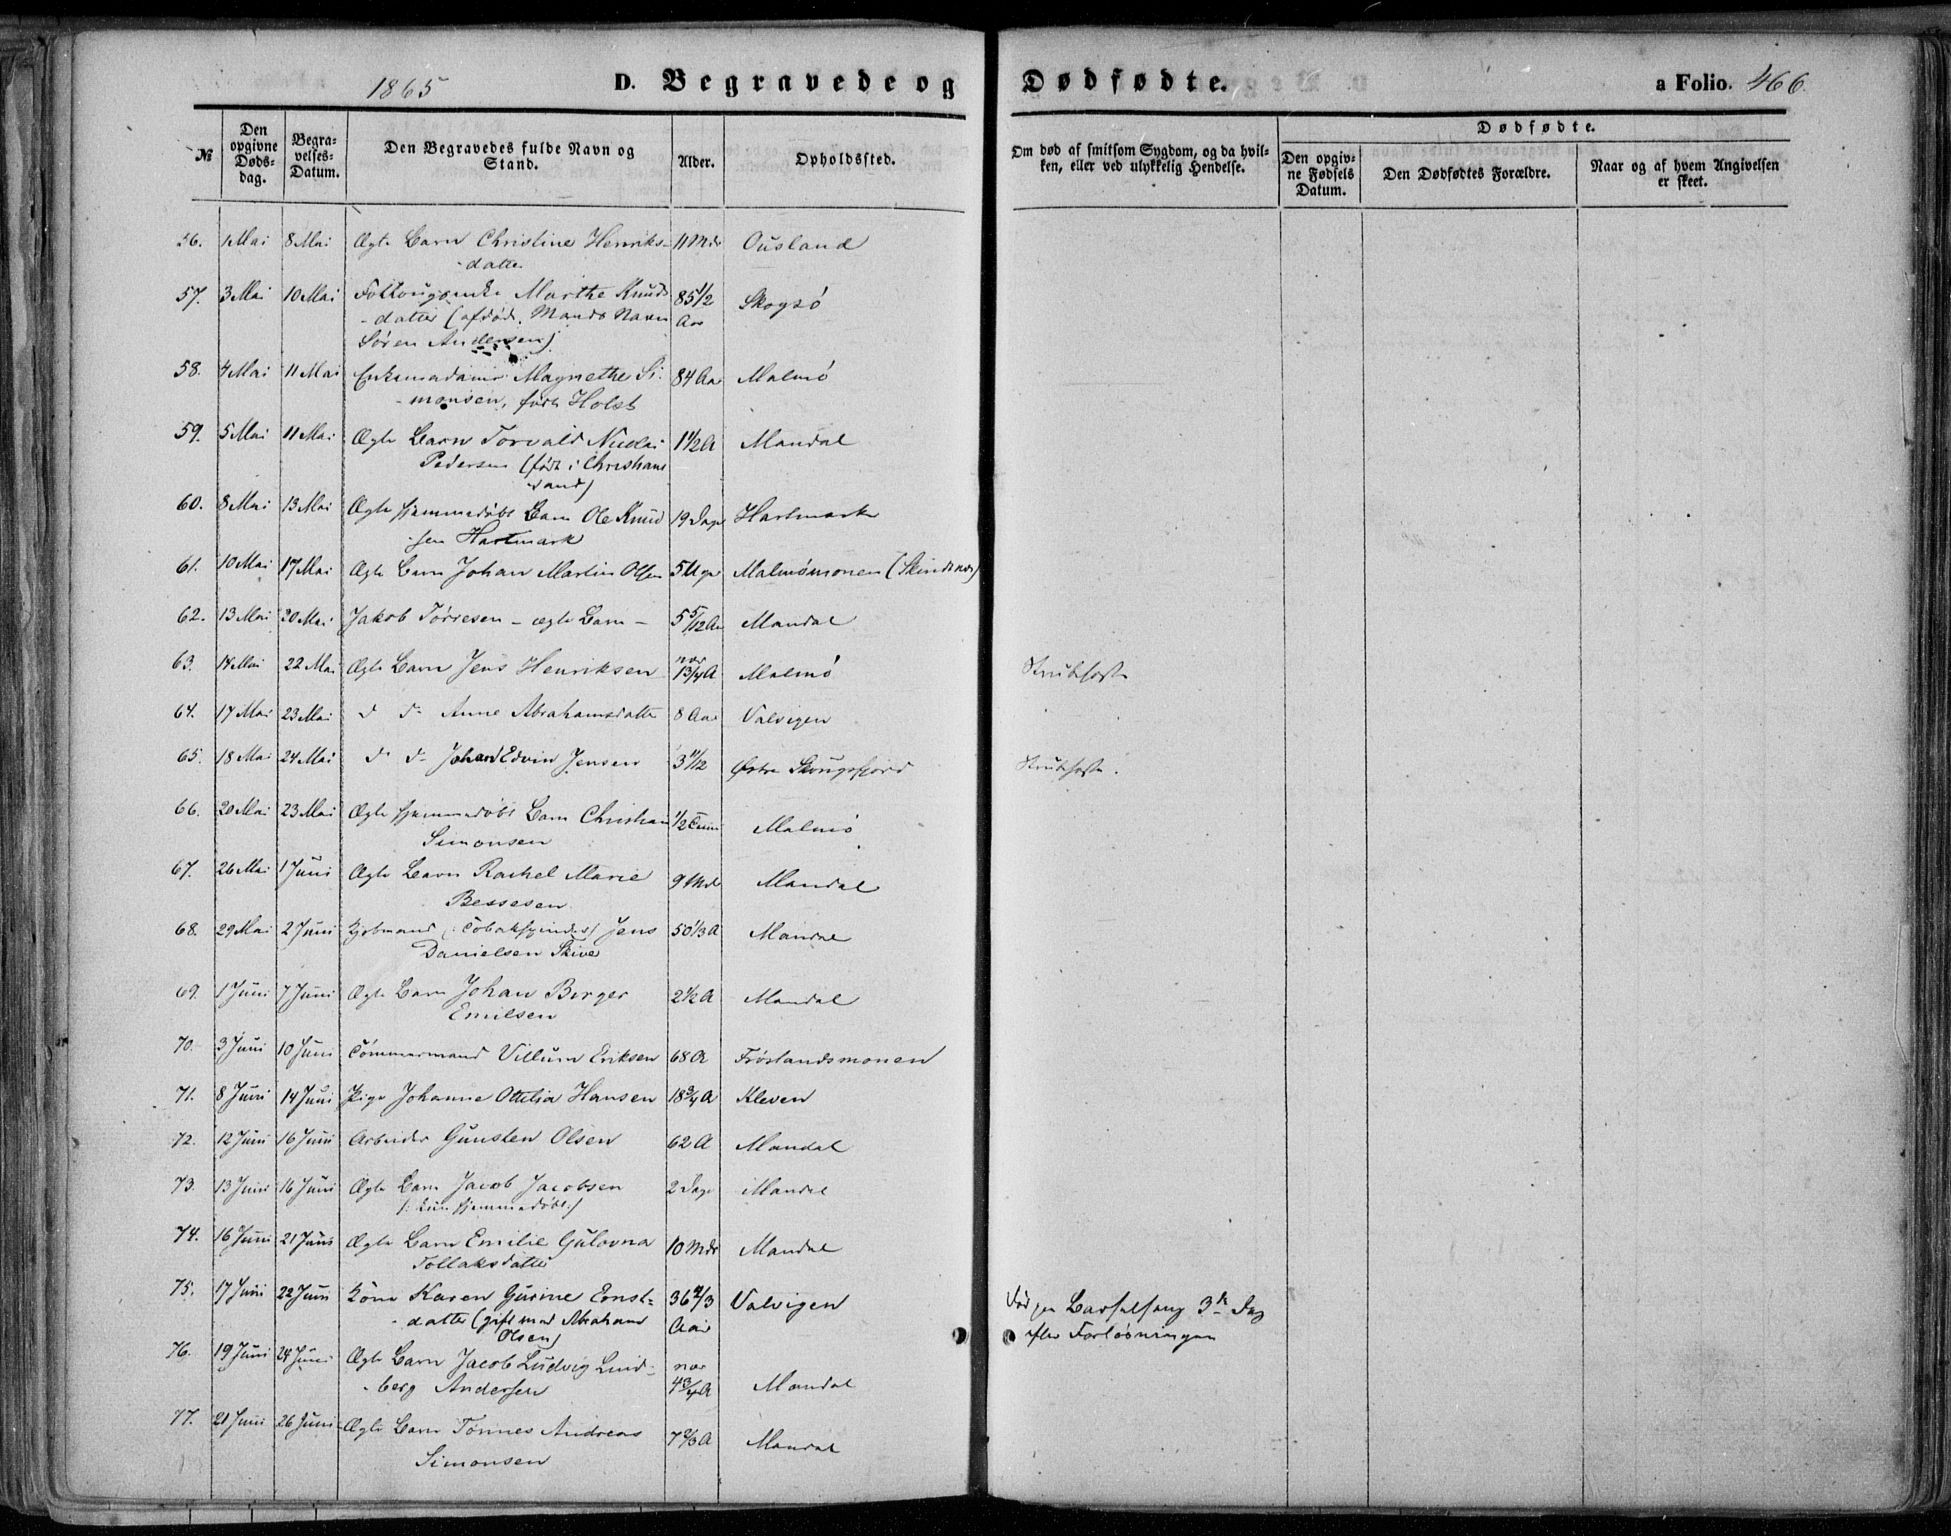 1865
D. Begravede og Dødfødte.
a Folio. 466.
№
Den opgivne Døds-dag.
Begra-velses-Datum.
Den Begravedes fulde Navn og Stand.
Alder.
Opholdssted.
Om død af smitsom Sygdom, og da hvil-ken, eller ved ulykkelig Hendelse.
Dødfødte.
Den opgiv-ne Fødsels Datum.
Den Dødfødtes Forældre.
Naar og af hvem Angivelsen er skeet.
56. 1 Mai 8 Mai Ægte Barn Christine Henriks- 11 Mdr Ousland
-datter
57. 3 Mai 10 Mai Marthe Knuds 85 1/2 Skogsø
-datter (afdød. Mands Navn Aar
Søren Andersen)
58. 4 Mai 11 Mai Enkemadame Magnethe Si- 84 Aar Malmø
-monsen, født Holst
59. 5 Mai 11 Mai Ægte Barn Torvald Nicolai 1 1/2 A Mandal
Pedersen (født i Christians
sand)
60. 8 Mai 13 Mai Ægte hjemmedøbt Barn Ole Knud 19 Dage Hartmark
-sen Hartmark
61. 10 Mai 17 Mai Ægte Barn Johan Martin Olsen 5 Uger Malmømonen (Skindsnes)
62. 13 Mai 20 Mai Jakob Tørresen - ægte Barn - 5 5/12 Aar Mandal
63. 14 Mai 22 Mai Ægte Barn Jens Henriksen nær 1 3/4 A Malmø Strubehoste
64. 17 Mai 23 Mai d d- Anne Abrahamsdatter 8 Aar Valvigen
65. 18 Mai 24 Mai d d- Johan Edvin Jensen 3 11/12 Østre Skougsfjord Strubehoste.
66. 20 Mai 23 Mai Ægte hjemmedøbt Barn Christian 1/2 Time Malmø
Simonsen
67. 26 Mai 1 Juni Ægte Barn Rachel Marie 9 Mdr Mandal
Bessesen
68. 29 Mai 2 Juni Kjøbmand (Tobakspinder) Jens 50 1/3 A Mandal
Danielsen Skive
69. 1 Juni 7 Juni Ægte Barn Johan Birger 2 1/2 A Mandal
Emilsen
70. 3 Juni 10 Juni Tømmermand Villum Eriksen 68 A Frøslandsmonen
71. 8 Juni 14 Juni Pige Johanne Ottilia Hansen 18 3/4 A Kleven
72. 12 Juni 16 Juni Arbeider Gunsten Olsen 62 A Mandal
73. 13 Juni 16 Juni Ægte Barn Jacob Jacobsen 2 Dage Mandal
(: kun hjemmedøbt:)
74. 16 Juni 21 Juni Ægte Barn Emilie Gulovna 10 Mdr Mandal
Tollaksdatter
75. 17 Juni 22 Juni Kone Karen Gurine Ernst- 36 2/3 Valvigen Død paa Barselseng 3de Dag
-datter (gift med Abraham Aar efter Forløsningen
Olsen)
76. 19 Juni 24 Juni Ægte Barn Jacob Ludvig Lind- nær
-berg Andersen 4 3/4 A Mandal
77. 21 Juni 26 Juni Ægte Barn Tønnes Andreas 7 2/3 A Mandal
Simonsen